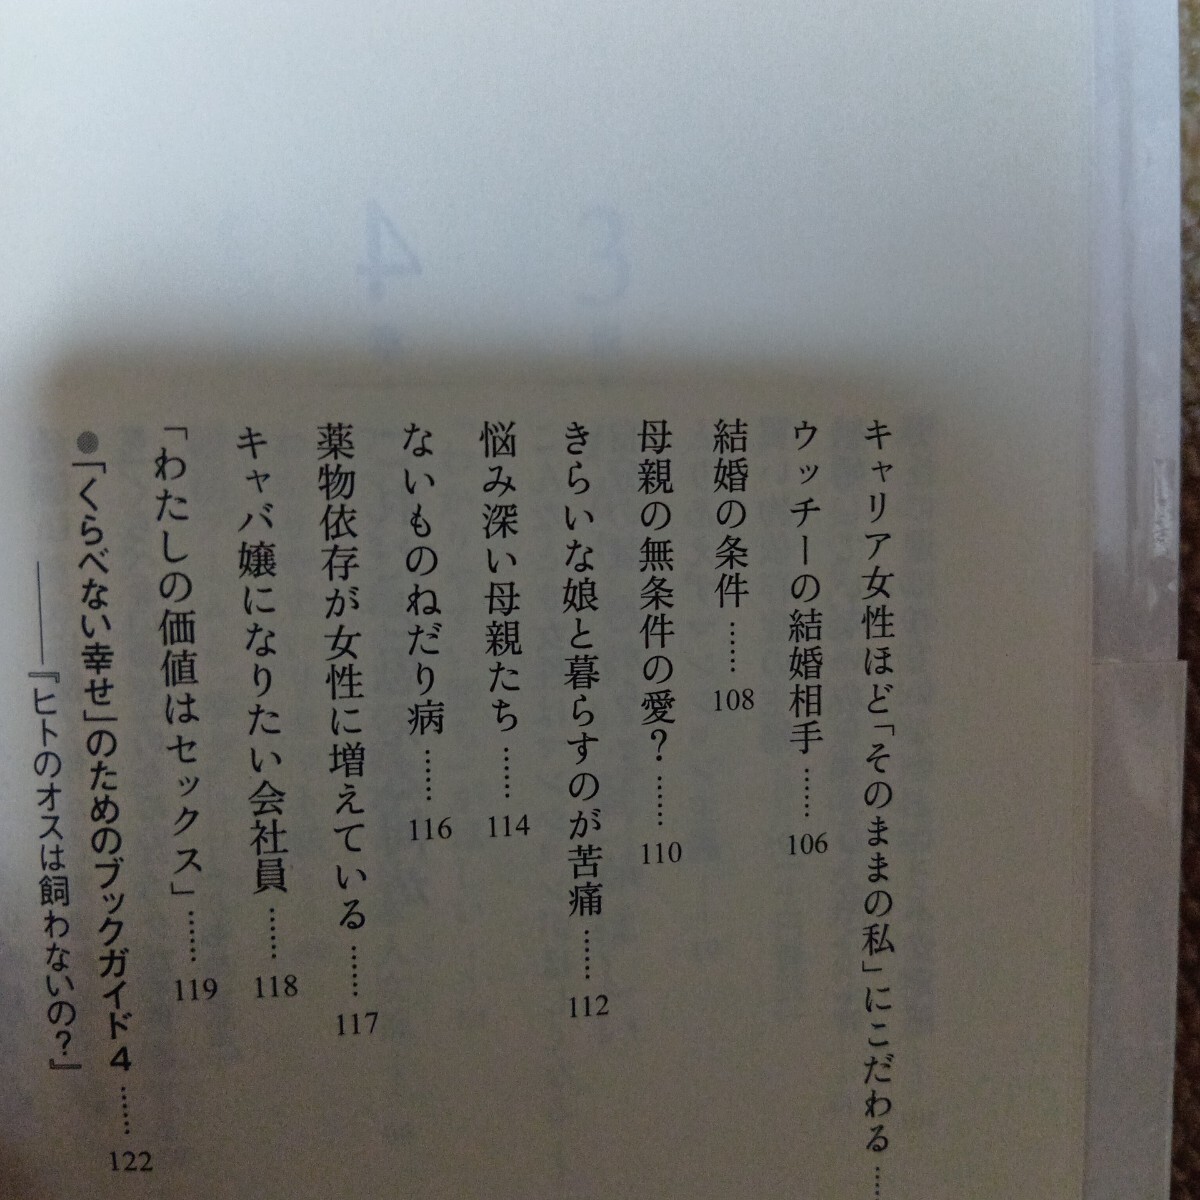 キャリア女性ほど「そのままの私」にこだわる……
ウッチーの結婚相手……106
結婚の条件……108
母親の無条件の愛？……110
きらいな娘と暮らすのが苦痛……112
悩み深い母親たち……114
ないものねだり病……116
薬物依存が女性に増えている……117
キャバ嬢になりたい会社員……118
「わたしの価値はセックス」……119
●「くらべない幸せ」のためのブックガイド４……122
――『ヒトのオスは飼わないの？』